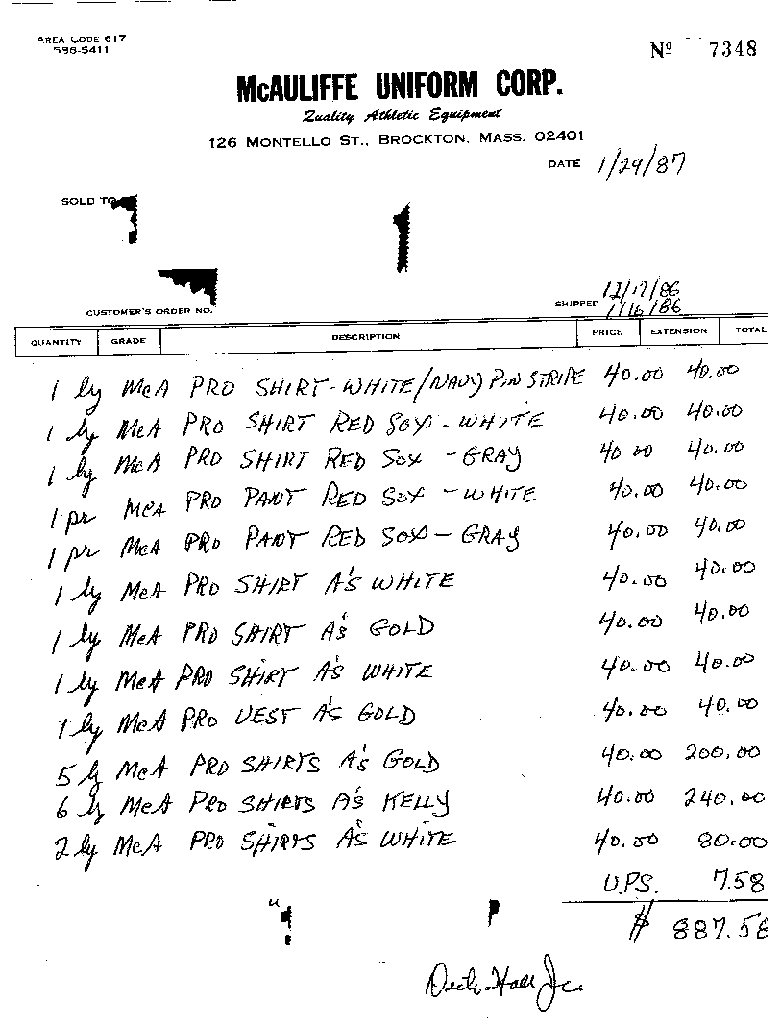 AREA CODE 617
No 7348
598-5411
McAULIFFE UNIFORM CORP.
Quality Athletic Equipment
126 MONTELLO ST., BROCKTON, MASS. 02401
DATE 1/29/87
SOLD TO
12/17/86
CUSTOMER'S ORDER NO. SHIPPED 1/16/86
QUANTITY GRADE DESCRIPTION PRICE EXTENSION TOTAL
1 ly McA PRO SHIRT-WHITE/NAVY PIN STRIPE 40.00 40.00
1 ly McA PRO SHIRT RED SOX - WHITE 40.00 40.00
1 ly McA PRO SHIRT RED SOX - GRAY 40 00 40.00
1 pr McA PRO PANT RED SOX - WHITE 40.00 40.00
1 pr McA PRO PANT RED SOX - GRAY 40.00 40.00
1 ly McA PRO SHIRT A's WHITE 40.00 40.00
1 ly McA PRO SHIRT A's GOLD 40.00 40.00
1 ly McA PRO SHIRT A's WHITE 40.00 40.00
1 ly McA PRO VEST A's GOLD 40.00 40.00
5 ly McA PRO SHIRTS A's GOLD 40.00 200.00
6 ly McA PRO SHIRTS A's KELLY 40.00 240.00
2 ly McA PRO SHIRTS A's WHITE 40.00 80.00
U.P.S. 7.58
$ 887.58